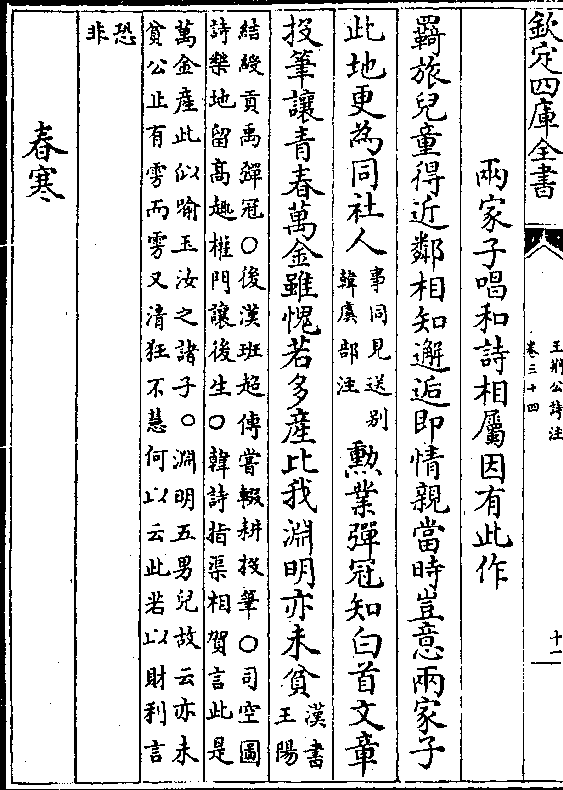 欽定四庫全書
王荆公詩注
卷三十四
十一
兩家子唱和詩相屬因有此作
羇旅兒童得近鄰相知邂逅即情親當時豈意兩家子
此地更為同社人
事同見送别
韓虞部注
勲業彈冠知白首文章
投筆讓青春萬金雖愧若多産比我淵明亦未貧
漢書
王陽
結綬貢禹彈冠〇後漢班超傳嘗輟耕投筆〇司空圖
詩樂地留高趣權門讓後生〇韓詩指渠相賀言此是
萬金産此似喻玉汝之諸子〇淵明五男兒故云亦未
貧公止有雱而雱又清狂不慧何以云此若以財利言
恐
非
春寒